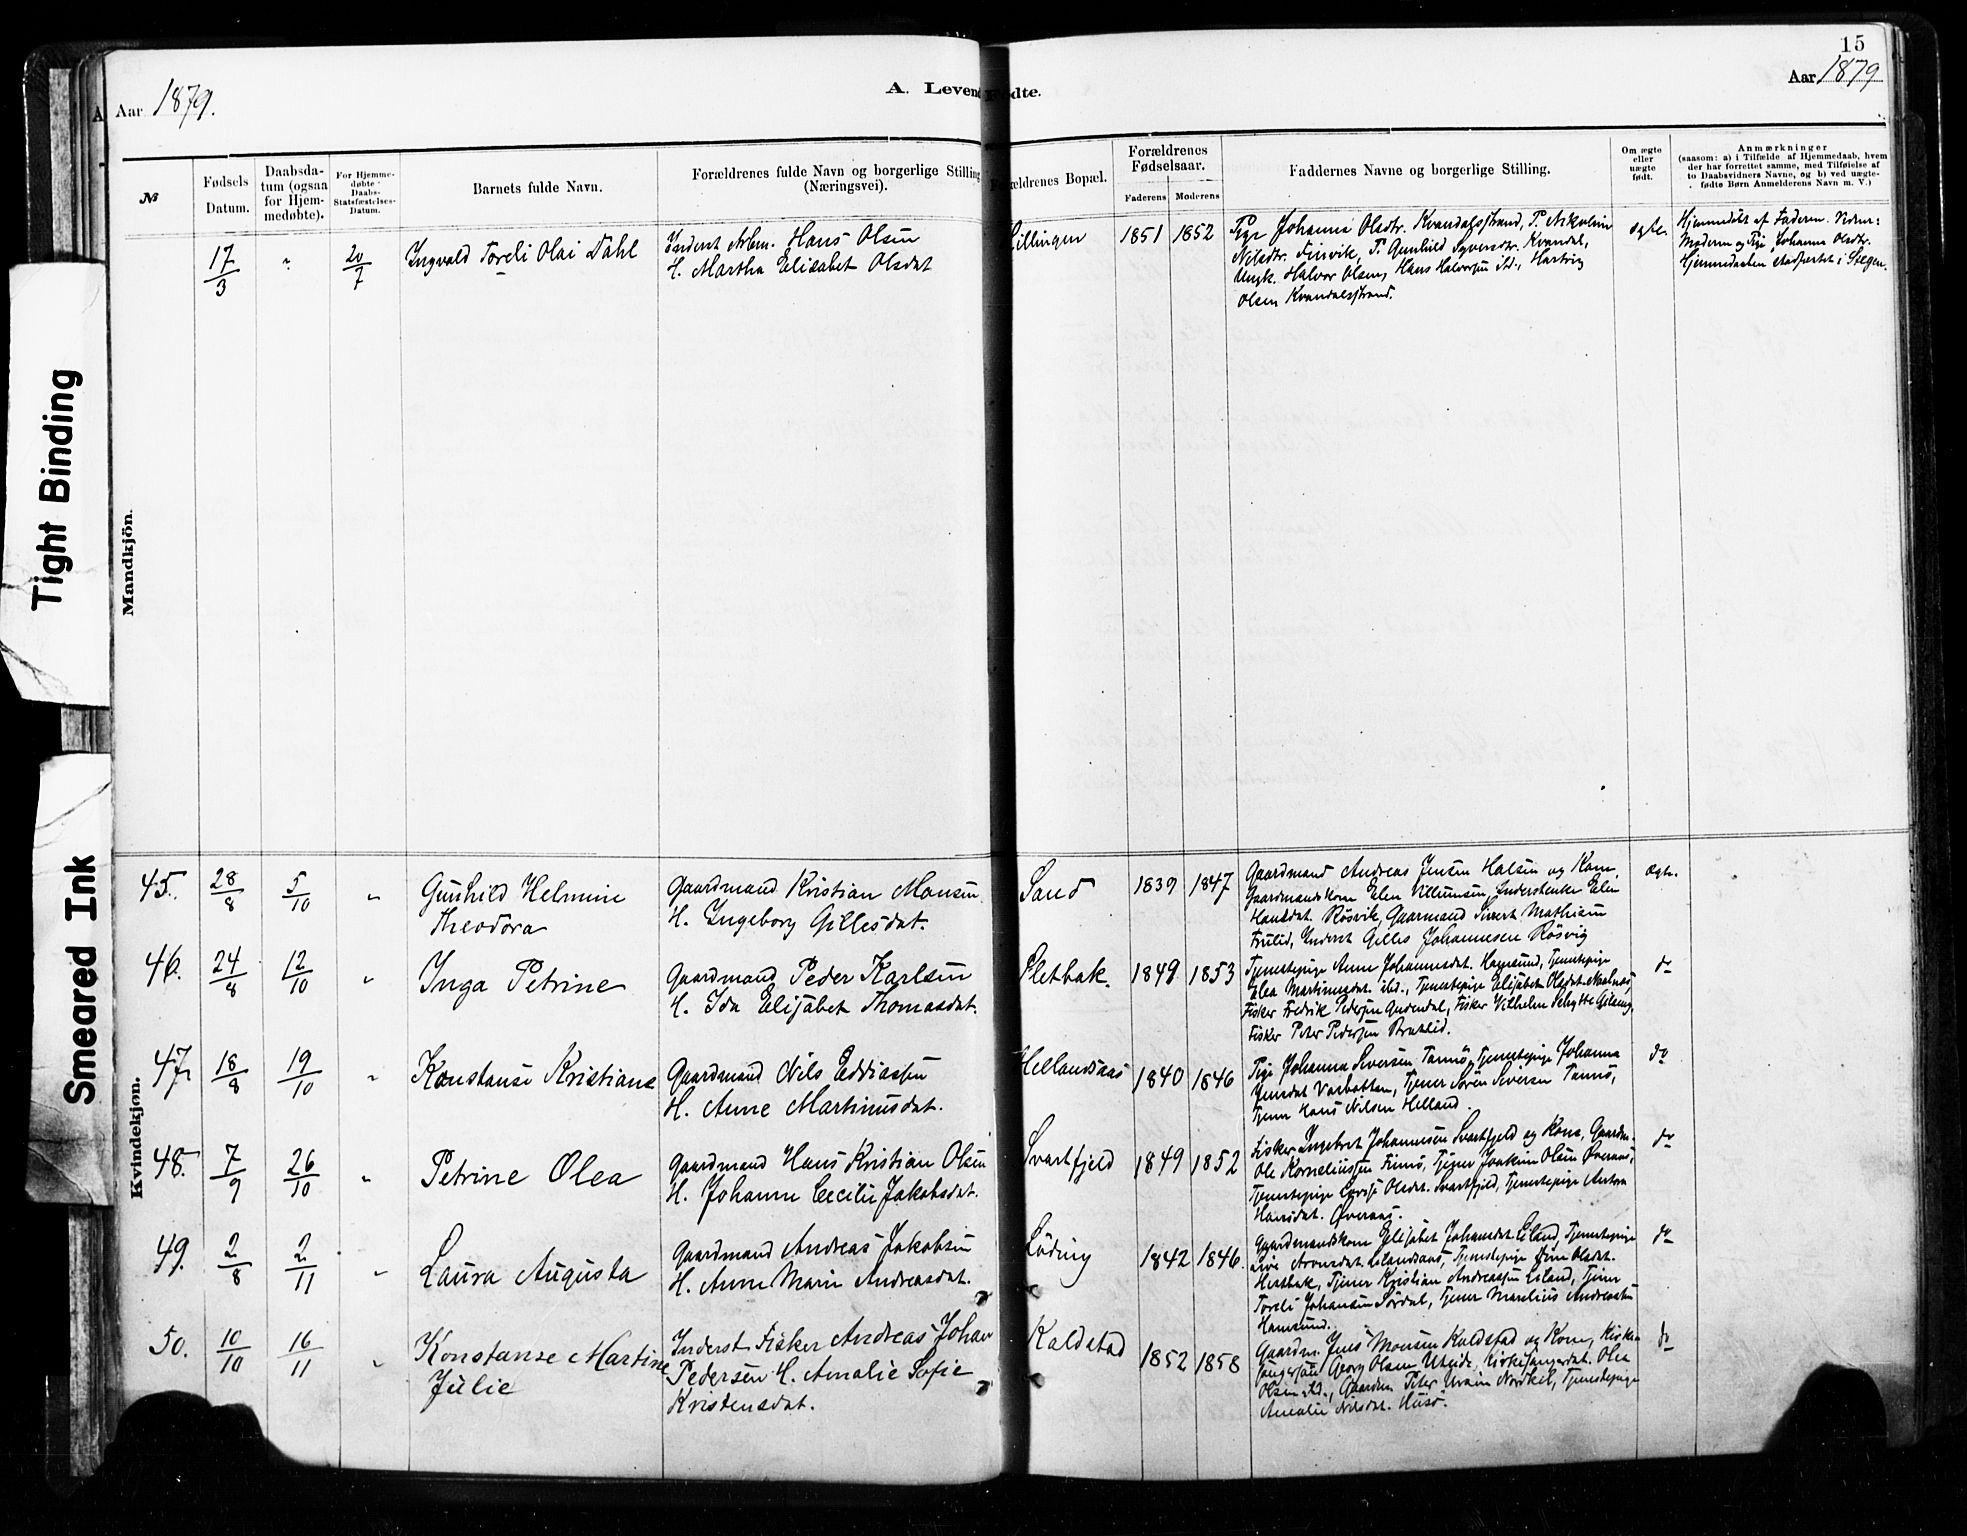 15
Aar 1879.
A. Levende Fødte.
Aar 1879
№
Fødsels Datum.
Daabsda-tum (ogsaa for Hjem-medøbte).
For Hjemme-døbte: Daabs-Statsfæstelses-Datum.
Barnets fulde Navn.
Forældrenes fulde Navn og borgerlige Stilling (Næringsvei).
Forældrenes Bopæl.
Forældrenes Fødselsaar.
Faderens
Moderens
Faddernes Navne og borgerlige Stilling.
Om ægte eller uægte født.
Anmærkninger
(saasom: a) i Tilfælde af Hjemmedaab, hvem
der har forrettet samme, med Tilføielse af
to Daabsvidners Navne, og b) ved uægte-
fødte Børn Anmelderens Navn m. V.)
Mandkjön.
17/3 " 20/7 Ingvald Toreli Olai Dahl
Inderst Arbm. Hans Olsen
H. Martha Elisabet Olsdat
Lillingen 1851 1852
Pige Johanna Olsdtr. Kvandalsstrand, P.
Nilsdtr. Finvik, P. Gunhild Syversdtr. Kvandal,
Ungk. Halvor Olsen, Hans Halvorsen ibd., Hartvig
Olsen Kvandalsstrand.
ægte.
Hjemmedøbt af Faderen. Vidner:
Moderen og Pige Johanna Olsdtr.
Hjemmedaaben stadfæstet i Stegen.
Kvindekjön.
45. 28/8 5/10 " Gunhild Helmine
Theodora
Gaardmand Kristian Monsen
H. Ingeborg Gillesdat.
Sand 1839 1847
Gaardmand Andreas Jensen Halsen og Kone,
Gaardmandskone Elen Villumsen, Inderstenke Elen
Hansdat. Røsvik, Gaarmand Sivert Mathisen
Trulid, Inderst Gilles Johannesen Røsvig
ægte.
46. 24/8 12/10 " Inga Petrine
Gaardmand Peder Karlsen
H. Ida Elisabet Thomasdat.
Sletbak. 1849 1853
Tjenestepige Anne Johannesdat. Hamsund, Tjenestepige
Elea Martinusdat. ibd., Tjenestepige Elisabet Olsdat.
Fisker Fredrik Pedersen, Fisker Vilhelm Schytte
Fisker Peter Pedersen Bratlid.
do
47. 18/8 19/10 " Konstanse Kristiane
Gaardmand Nils Eddiassen
H. Anne Martinusdat.
Hellandsaas 1840 1846
Pige Johanna Seversen Tannø, Tjenestepige Johanna
Jensdat Varbatten, Tjener Søren Seversen Tannø,
Tjener Hans Nilsen Helland.
do
48. 7/9 26/10 " Petrine Olea
Gaardmand Hans Kristian Olsen
H. Johanne Cecilie Jakobsdat.
Svartfjeld 1849 1852
Fisker Ingebret Johannesen Svartfjeld og Kone, Gaardm.
Ole Korneliussen Finnø, Tjener Joakim Olsen Øveraas,
Tjenestepige Olsdat. Svartfjeld, Tjenestepige Antona
Hansdat. Øveraas.
do
49. 2/8 2/11 " Laura Augusta
Gaardmand Andreas Jakobsen
H. Anne Marie Andreasdat.
Løding 1842 1846.
Gaardmandskone Elisabet Johansdat. Eiland, Tjenestepige
Live Arvesdat. Tjenestepige Olsdat.
Hestbak, Tjener Kristian Andreassen Eiland, Tjener
Toreli Johansen Sørdal, Tjener Marelius Andreassen
Hamsund.
do
50. 10/10 16/11 " Konstanse Martine
Julie
Inderst Fisker Andreas Johan
Pedersen H. Amalie Sofie
Kristensdat.
Kaldstad 1852 1858
Gaardm. Jens Monsen Kaldstad og Kone, Kirke-
sanger Georg Olsen Uteide, Kirkesangerdat. Olea
Olsen ibd., Gaardm. Peter Nordkil, Tjenestepige
Amalie Nilsdat. Husø.
do
Tight Binding
Smeared Ink